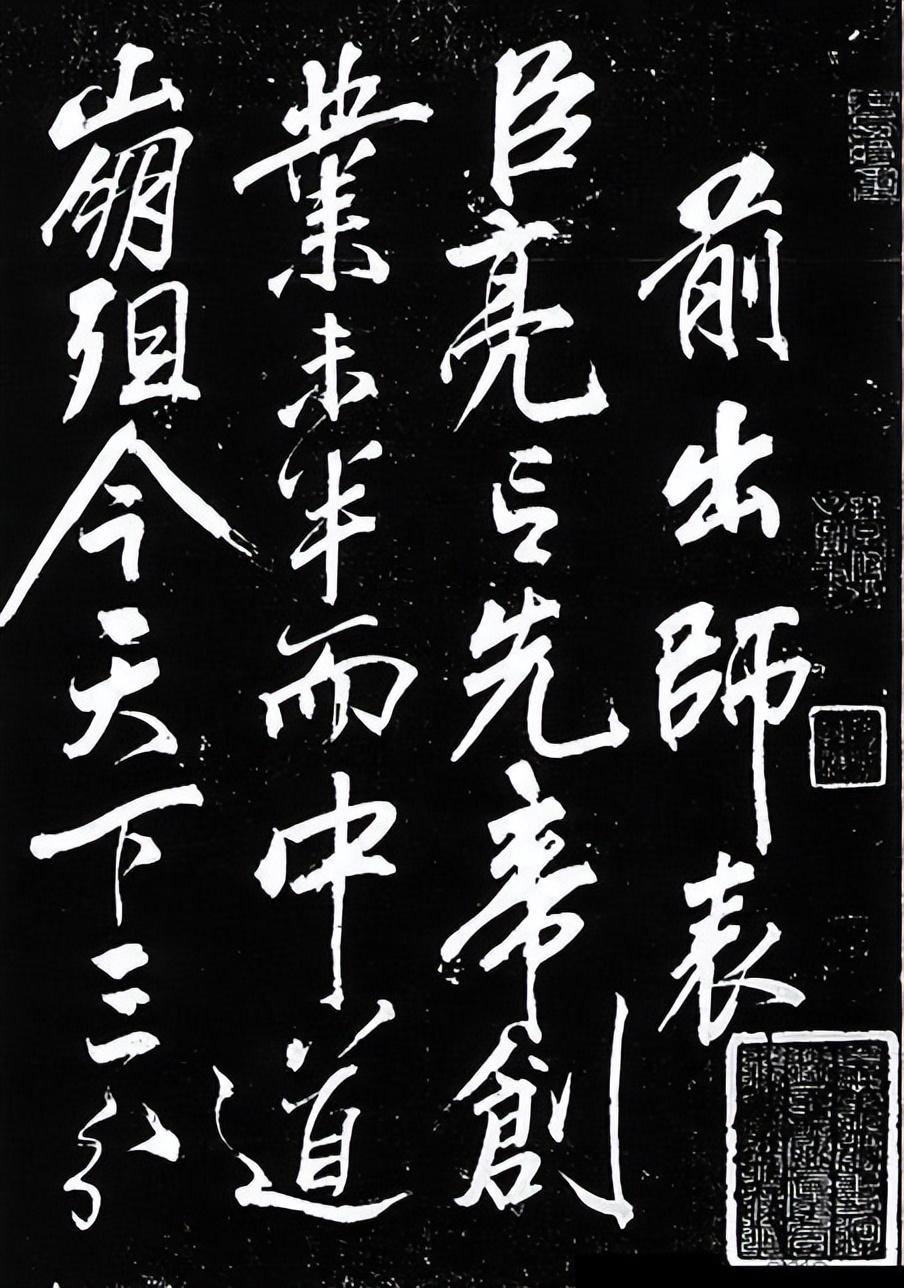 前出師表
臣亮言先帝創
業未半而中道
崩殂今天下三分